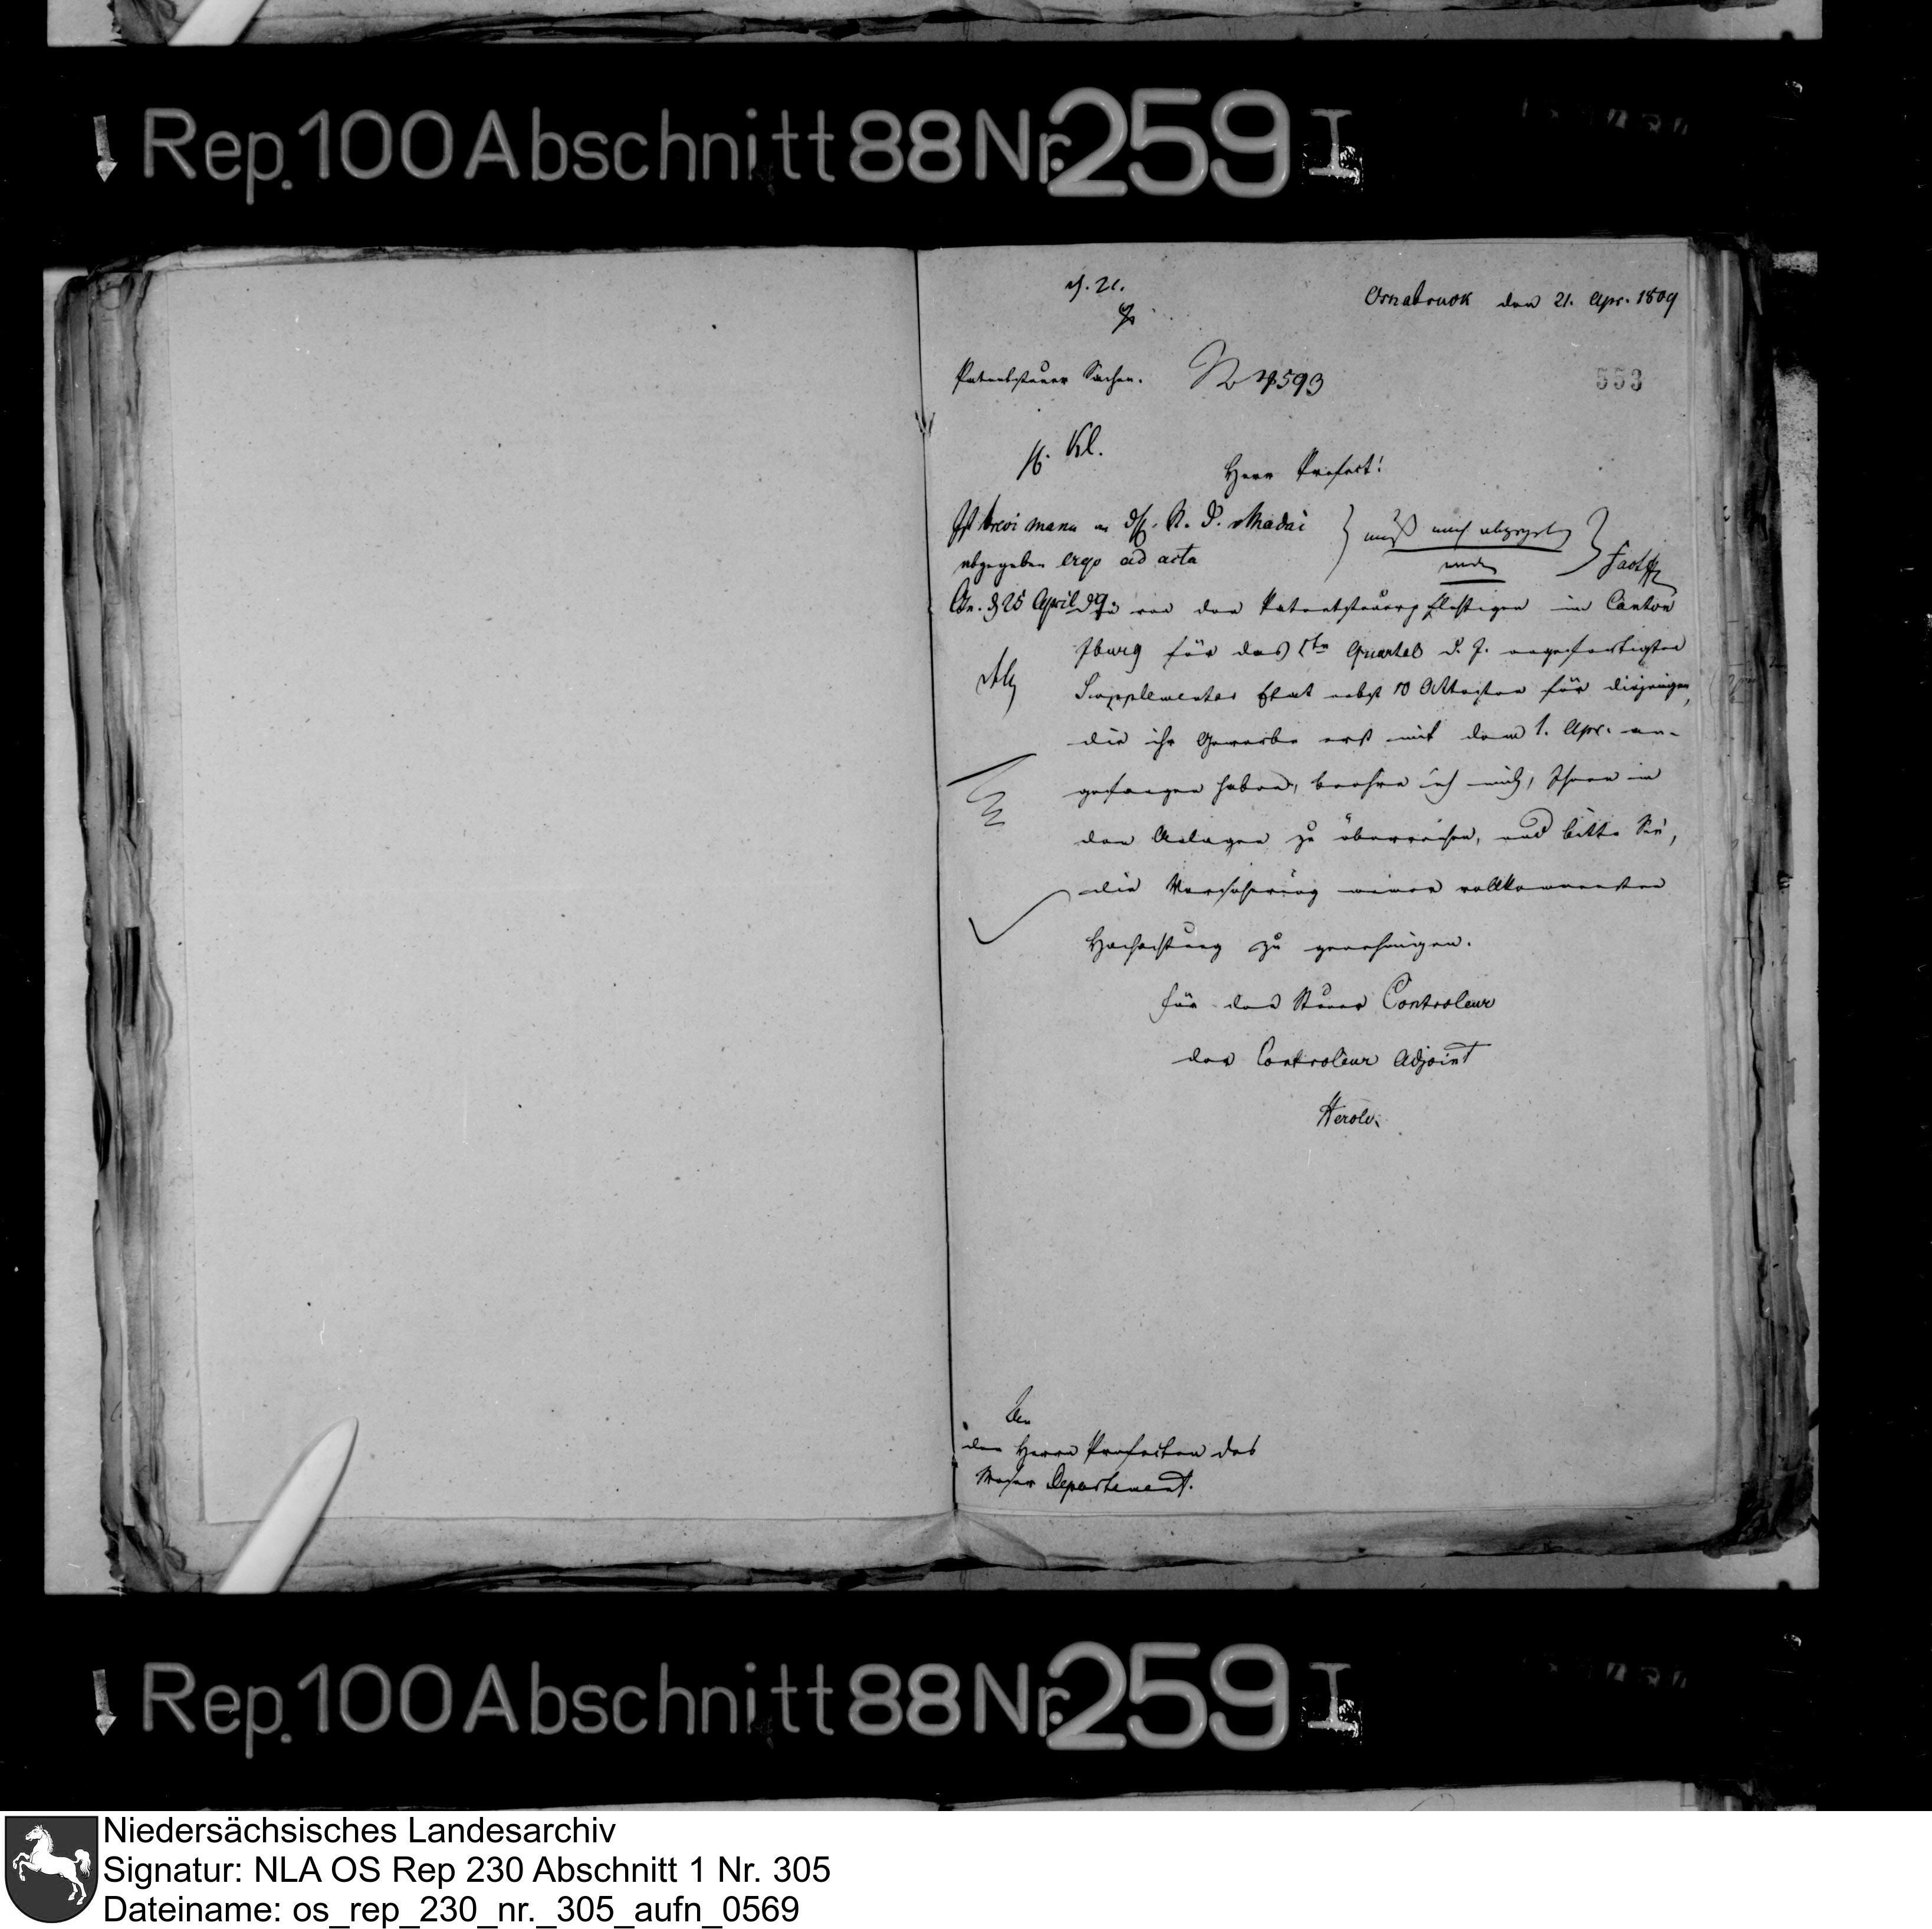 Rep. 100 Abschnitt 88 Nr. 259 I
Osnabruck den 21. Apr. 1809
Patentsteuer Sachen. No 593
553
Kl.
Herr Präfect!
Ist brevi manu an H. P. Madai
abgegeben ergo ad acta
muß noch abgegeben
werden
Osn. d 25 April 09.
von den Patentsteuerpflichtigen im Canton
Iburg für das 1te Quartal d. J. angefertigten
Supplementar Etat nebst 10 Attesten für diejenigen,
die ihr Gewerbe erst mit dem 1. Apr. an-
gefangen haben, beehre ich mich, Ihnen in
den Anlagen zu überreichen, und bitte Sie,
die Versicherung meiner vollkommensten
Hochachtung zu genehmigen.
für den Steuer Controleur
der Controleur Adjoint
Herold.
An
den Herrn Präfecten des
Weser Departement.
Rep. 100 Abschnitt 88 Nr. 259 I
Niedersächsisches Landesarchiv
Signatur: NLA OS Rep 230 Abschnitt 1 Nr. 305
Dateiname: os_rep_230_nr._305_aufn_0569